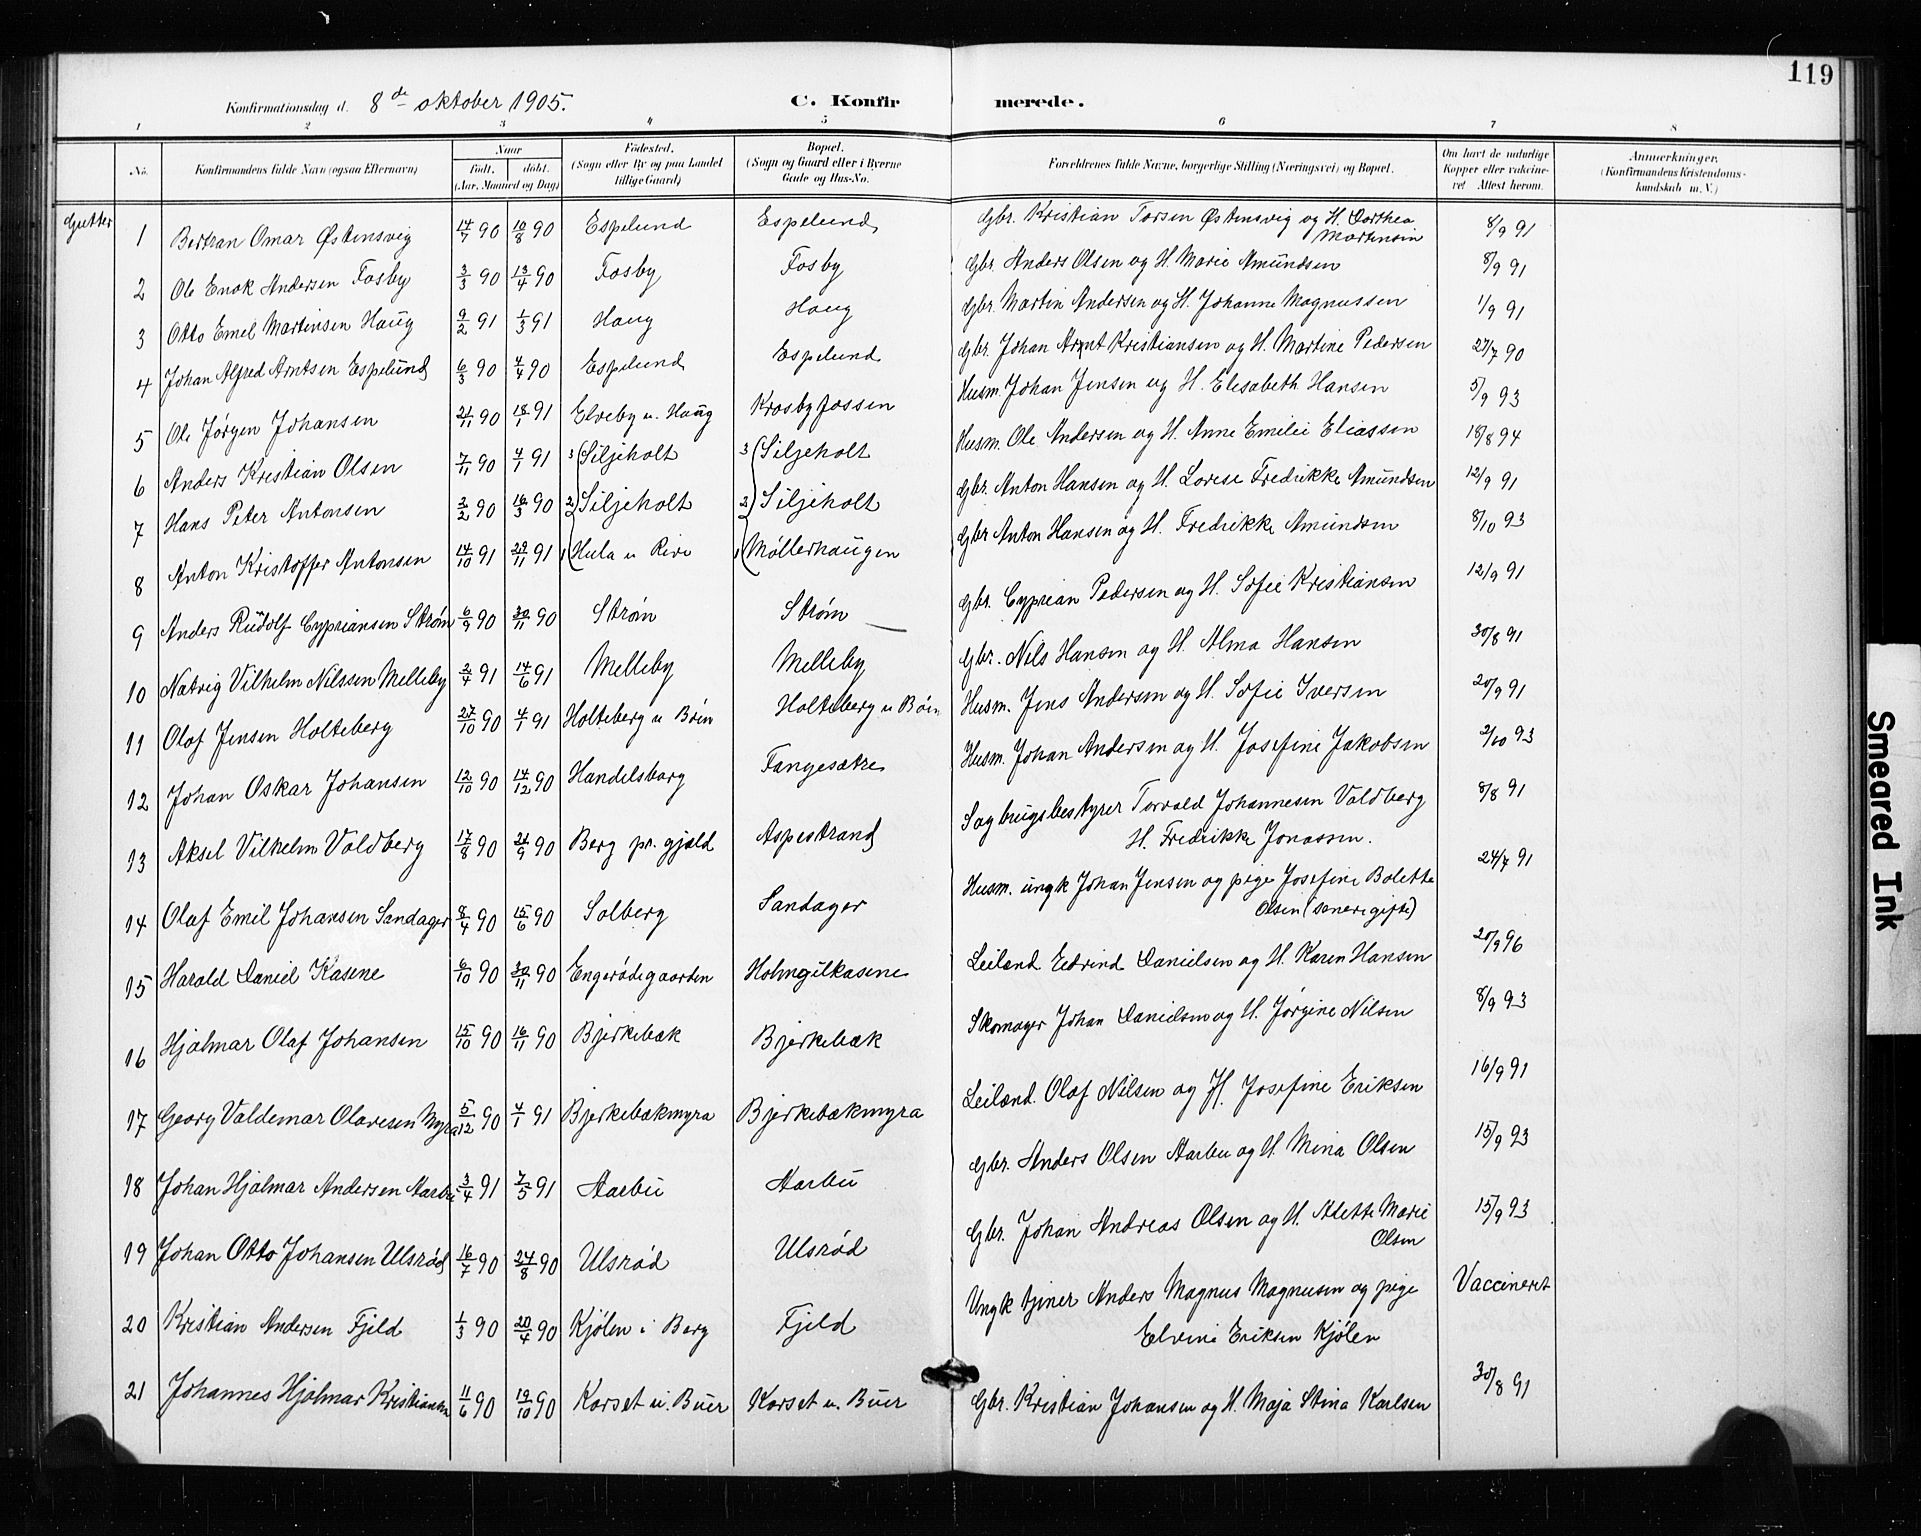 119
Konfirmationsdag d. 8de oktober 1905. C. Konfirmerede.
1 2 3 4 5 6 7 8
No. Konfirmandens fulde Navn (ogsaa Efternavn) Naar født. døbt. (Aar, Maaned og Dag) Fødested. (Sogn eller By og paa Landet tillige Gaard) Bopæl. (Sogn og Gaard eller i Byerne Gade og Hus-No. Forældrenes fulde Navne, borgerlige Stilling (Næringsvei) og Bopæl. Om havt de naturlige Kopper eller vakcineret Attest herom. Anmærkninger. (Konfirmandens Kristendomskundskab m. V.)
Gutter
1 Bertran Omar Østensvig 14/7 90 10/8 90 Espelund Espelund Gbr. Kristian Torsen Østensvig og H. Dorthea Martensin 8/9 91
2 Ole Enok Andersen Fosby 3/3 90 13/4 90 Fosby Fosby Gbr. Anders Olsen og H. Marie Amundsen 8/9 91
3 Otto Emil Martinsen Haug 9/2 91 1/3 91 Haug Haug Gbr. Martin Andersen og H. Johanne Magnussen 1/9 91
4 Johan Alfred Arntsen Espelund 6/3 90 4/4 90 Espelund Espelund Gbr. Johan Arnt Kristiansen og H. Martine Pedersen 27/7 90
5 Ole Jørgen Johansen 21/11 90 18/1 91 Elveby u. Haug Krosby fossen Husm. Johan Jensen og H. Elisabeth Hansen 5/9 93
6 Anders Kristian Olsen 7/11 90 4/1 91 3 Siljeholt 3 Siljeholt Husm. Ole Andersen og H. Anne Emilie Eliassen 18/8 94
7 Hans Peter Antonsen 2/2 90 16/3 90 2 Siljeholt 2 Siljeholt Gbr. Anton Hansen og H. Lovise Fredrikke Amundsen 12/9 91
8 Anton Kristoffer Antonsen 14/10 91 29/11 91 1 Hula u Rive 1 Møllerhaugen Gbr Anton Hansen og H. Fredrikke Amundsen 8/10 93
9 Anders Rudolf Cypriansen Strøm 6/9 90 30/11 90 Strøm Strøm Gbr. Cyprian Pedersen og H. Sofie Kristiansen 12/9 91
10 Natvig Vilhelm Nilssen Melleby 2/4 91 14/6 91 Melleby Melleby Gbr. Nils Hansen og H. Alma Hansen 30/8 91
11 Olaf Jensen Holteberg 27/10 90 4/1 91 Holteberg u Bøen Holteberg u Bøen Husm. Jens Andersen og H. Sofie Iversen 20/9 91
12 Johan Oskar Johansen 12/10 90 14/12 90 Handelsborg Fangesætre Husm. Johan Andersen og H. Josefine Jakobsen 2/10 93
13 Aksel Vilhelm Voldberg 17/8 90 21/9 90 Berg pr. gjæld Aspestrand Sagbrugsbestyrer Torvald Johannesen Voldberg 8/8 91
H. Fredrikke Jonassen.
14 Olaf Emil Johansen Sandager 8/4 90 15/6 90 Solberg Sandager Husm. ungk Johan Jensen og pige Josefine Bolette 24/7 91
Olsen (senere gifte)
15 Harald Daniel Kasene 6/10 90 30/11 90 Engerødegaarden Holmgilkasene Leilænd Edvind Danielsen og H. Karen Hansen 20/9 96
16 Hjalmar Olaf Johansen 15/10 90 16/11 90 Bjerkebæk Bjerkebæk Skomager Johan Danielsen og H. Jørgine Nilsen 8/9 93
17 Georg Valdemar Olavesen Myra 5/12 90 4/1 91 Bjerkebækmyra Bjerkebækmyra Leilænd. Olaf Nilsen og H. Josefine Eriksen 16/9 91
18 Johan Hjalmar Andersen Aarbu 3/4 91 7/5 91 Aarbu Aarbu Gbr. Anders Olsen Aarbu og H. Mina Olsen 15/9 93
19 Johan Otto Johansen Ulsrød 16/7 90 24/8 90 Ulsrød Ulsrød Gbr. Johan Andreas Olsen og H. Alette Marie Olsen 15/9 93
20 Kristian Andersen Fjeld 1/3 90 20/4 90 Kjølen i Berg Fjeld Ungk tjener Anders Magnus Magnusen og pige Vaccineret
Elvine Eriksen Kjølen
21 Johannes Hjalmar Kristiansen 11/6 90 19/10 90 Korset u. Buer Korset u. Buer Gbr. Kristian Johansen og H. Maja Stina Karlsen 30/8 91
Smeared Ink